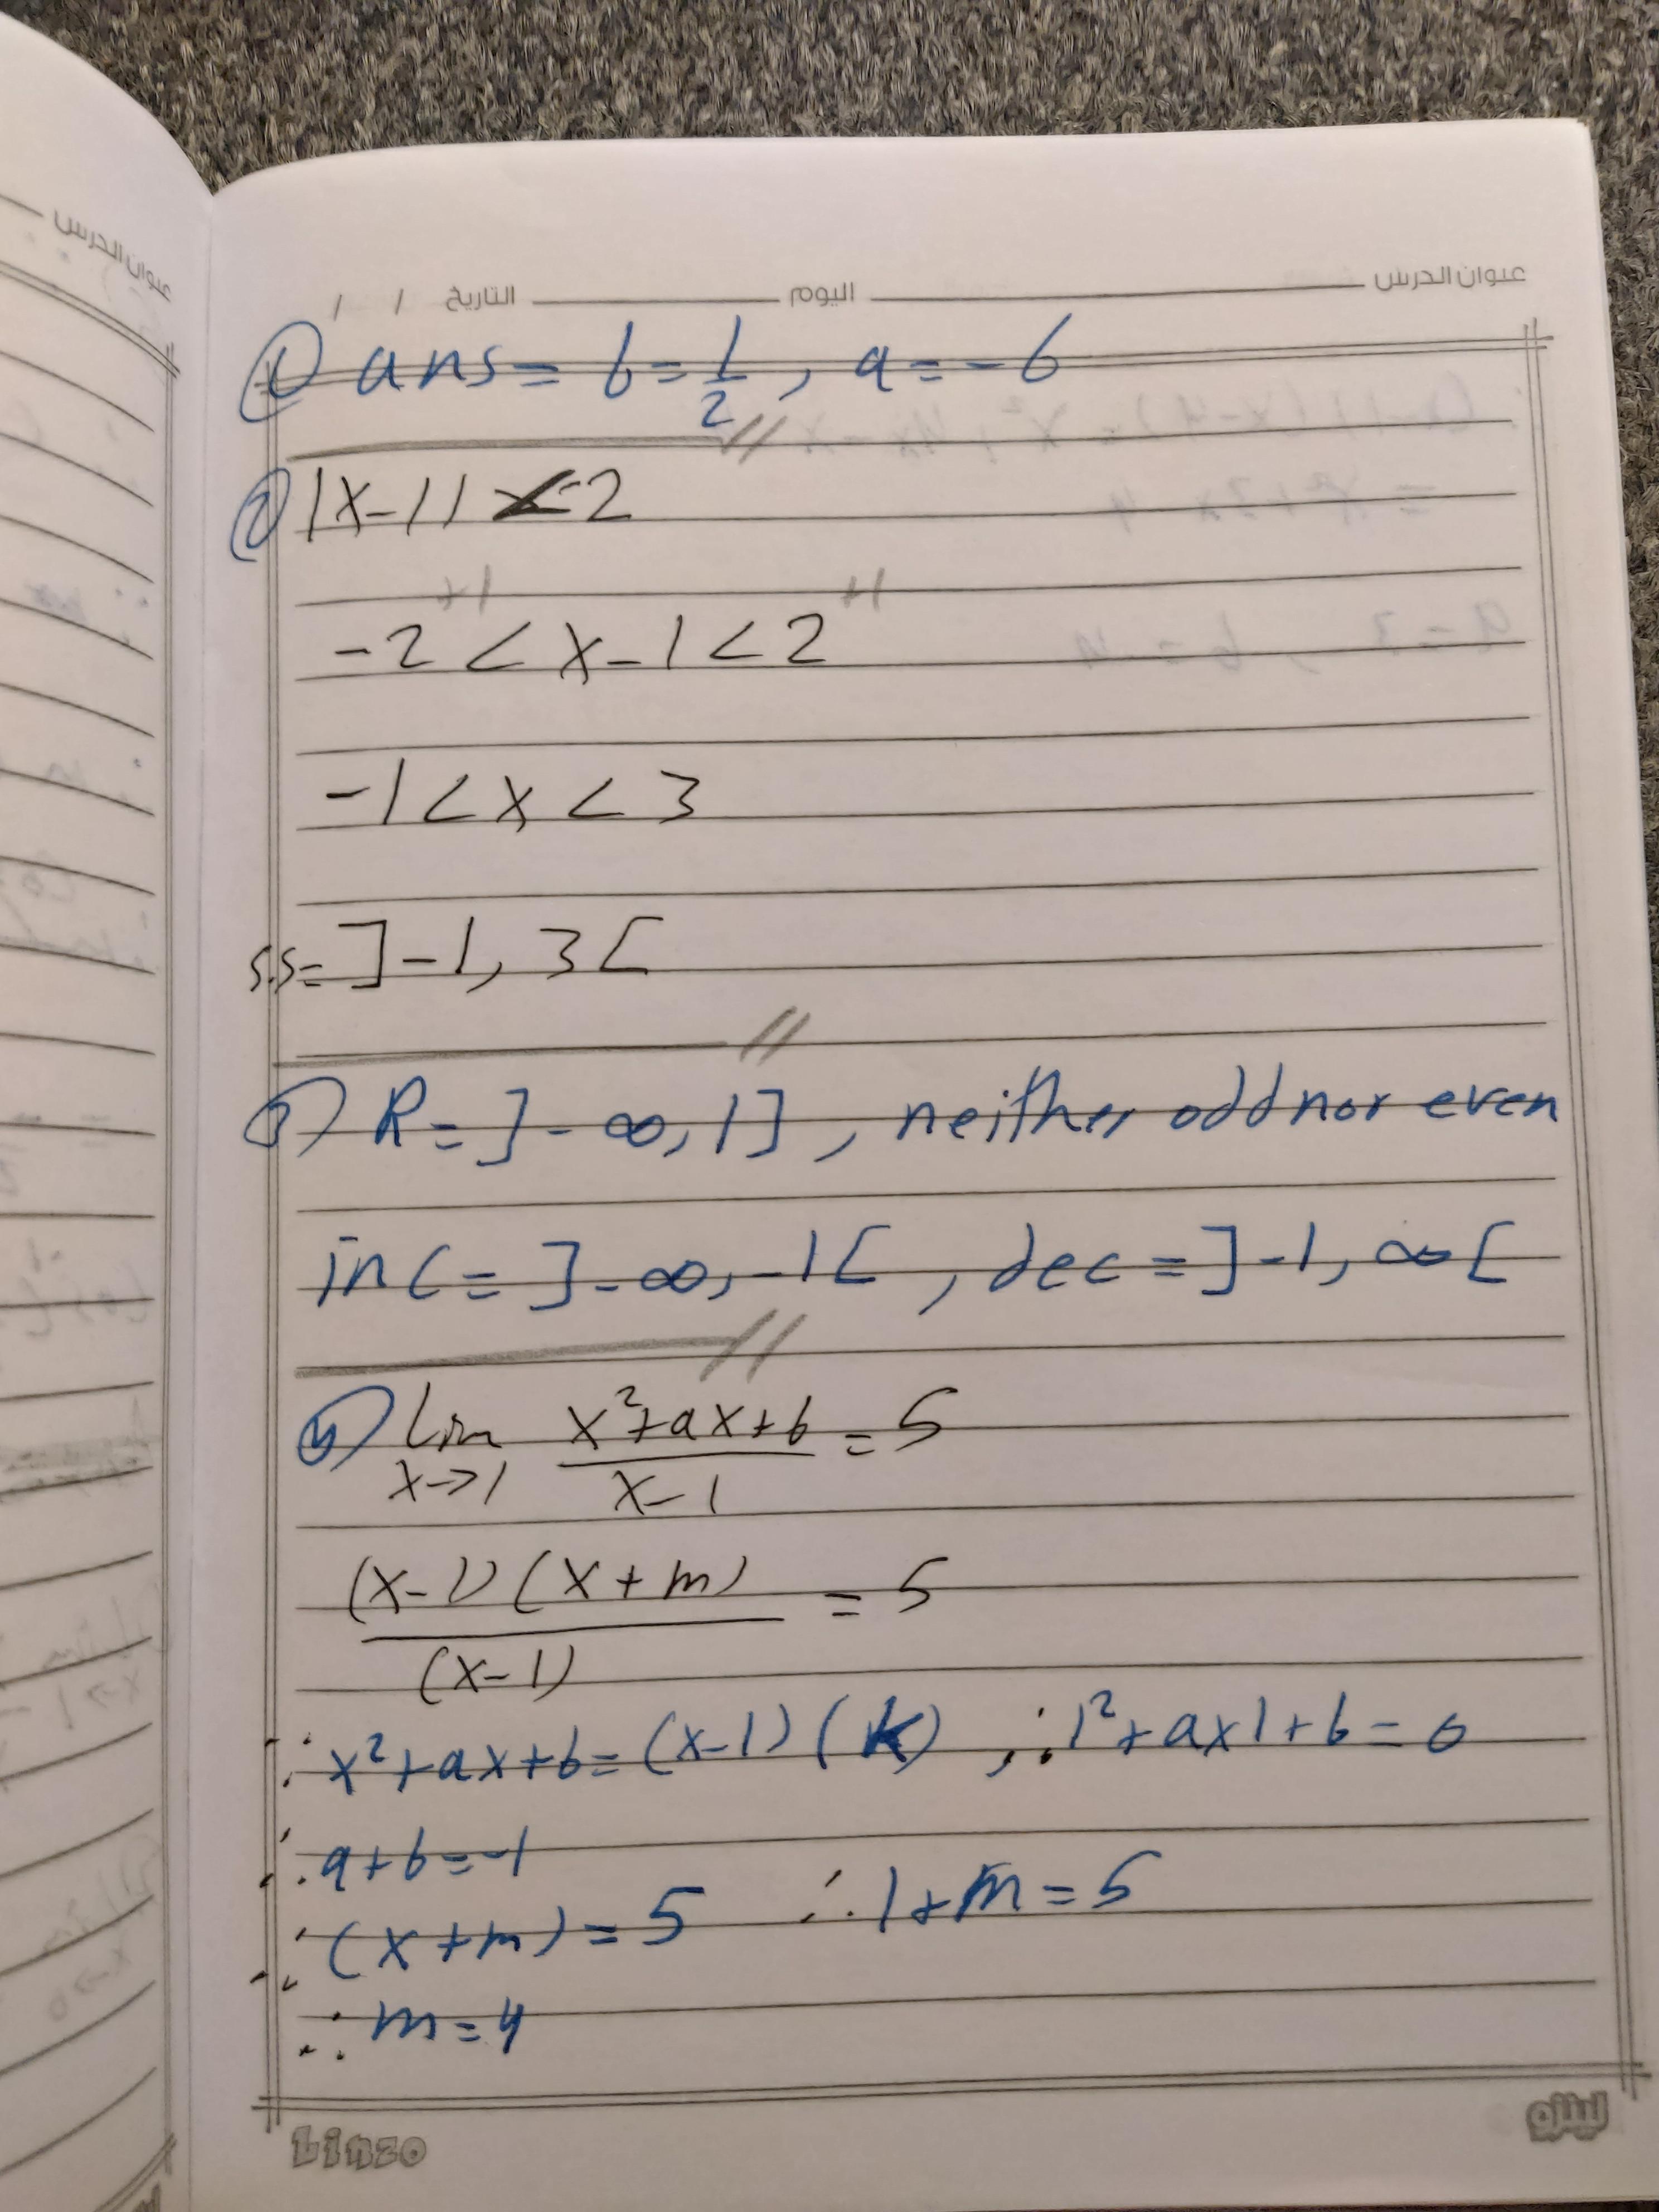 عنوان الدرس
عنوان الدرس اليوم التاريخ / /
① ans = b = 1/2 , a = -6
② |x-1| < 2
+1 +1
-2 < x-1 < 2
-1 < x < 3
s.s = ]-1, 3[
③ R = ]-∞, 1] , neither odd nor even
inc = ]-∞, -1[ , dec = ]-1, ∞[
④ lim x→1 (x²+ax+b)/(x-1) = 5
(x-1)(x+m)/(x-1) = 5
∴ x²+ax+b = (x-1)(k) , ∴ 1²+ax1+b = 0
∴ a+b = -1
∴ (x+m) = 5 ∴ 1+m = 5
∴ m = 4
Linzo لينزو